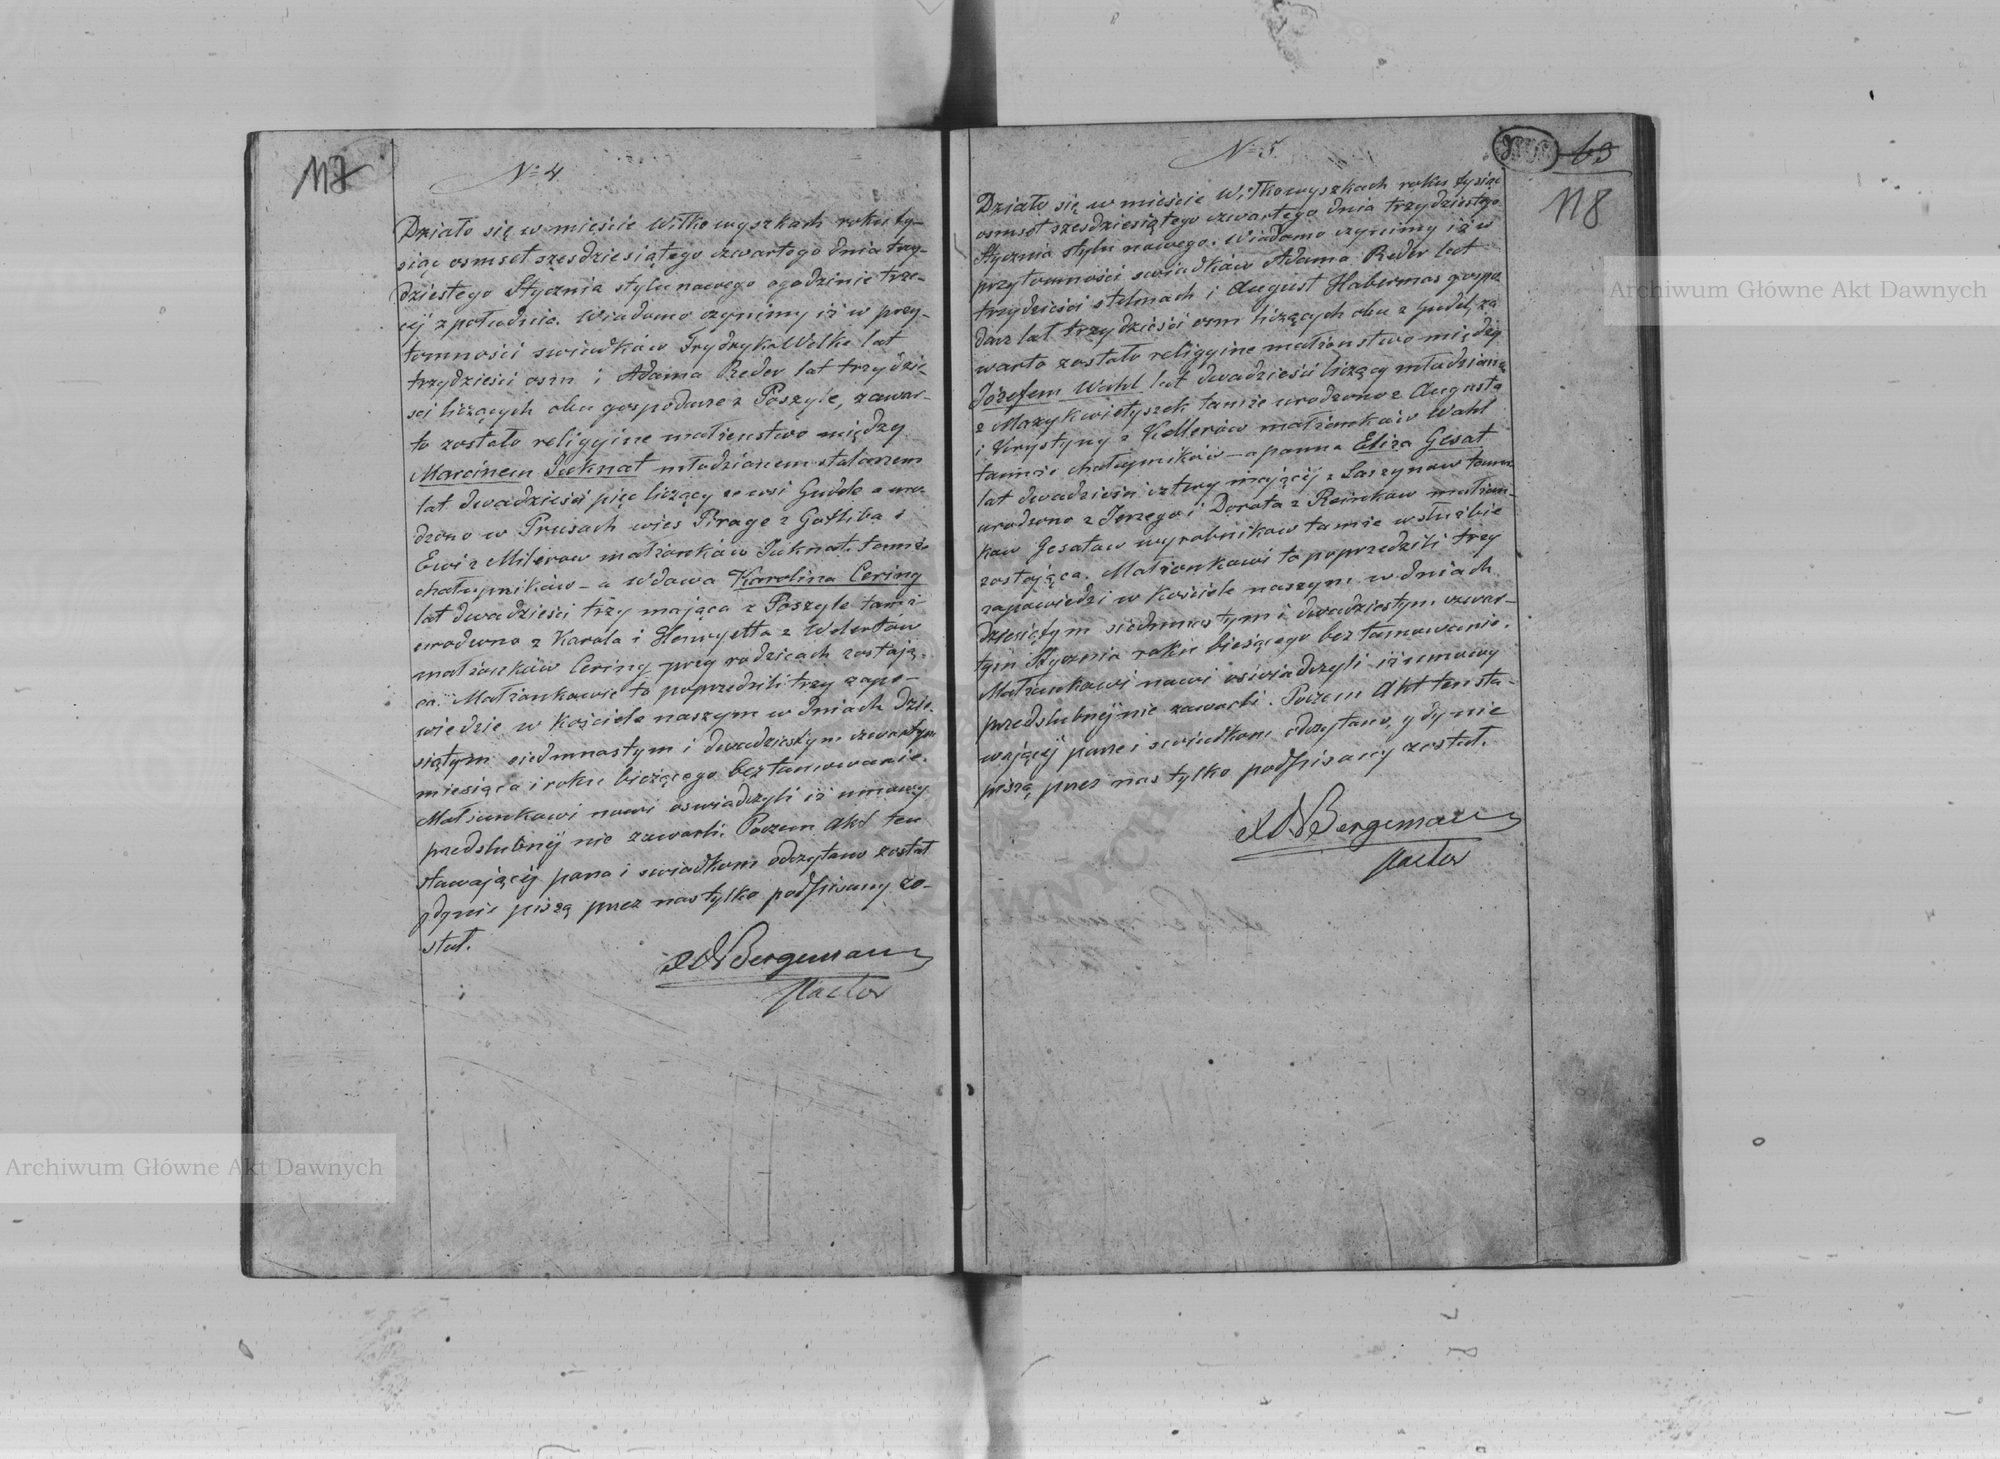 117
№ 4
Działo się w mieście Wiłkowyszkach roku ty-
siąc osmset szesdziesiątego czwartego dnia trzy-
dziestego Stycznia stylu nowego o godzinie trze-
ciéj z południa. Wiadomo czynimy iż w przy-
tomności swiadków Frydryka Welke lat
trzydzieści osm i Adama Reder lat trzydzie-
sci liczących obu gospodarze z Poszyle, zawar-
to zostało religyine małżenstwo między
Marcinem Juknat młodzianem stolarzem
lat dwadzieścia pięc liczący ze wsi Gudele a uro-
dzono w Prusach wies Pirage z Gotliba i
Ewi z Milerow małżonków Juknat tamże
chałupników - a wdowa Karolina Cering
lat dwadzieści trzy mająca z Poszyle tamże
urodzono z Karola i Henryetta z Welertów
małżonków Cering przy rodzicach zostają-
ca. Małżonkowie to poprzedzili trzy zapo-
wiedzie w kościele naszym w dniach dzie-
siątym siedmnastym i dwadziestym czwartym
miesiąca i roku bieżącego bez tamowanie.
Małżonkowi nowi oswiadczyli iż umowy
przedslubnéj nie zawarli. Poczem Akt ten
stawającéj para i swiadkom odczytano został
gdy nie piszą przez nas tylko podpisany zo-
stał.
Bergemann
Pastor
№ 5.
63
118
Działo się w mieście Wiłkowyszkach roku tysiąc
osmset szesdziesiątego czwartego dnia trzydziestego
Stycznia stylu nowego. Wiadomo czynimy iż w
przytomności swiadków Adama Reder lat
trzydzieści stelmach i August Habermas gospo-
darz lat trzydzieści osm liczących obu z Gudel, za
warto zostało religyine małżonstwo między
Józefem Wahl lat dwadzieścia liczący młodzianą
z Mazykwietyszek tamże urodzono z Augusta
i Krystyny z Kellerów małżonków Wahl
tamże chałupników - a panna Eliza Gesat
lat dwadzieścia cztery mającéj z tamże
urodzono z Jerzego i Dorota z Reinkow małżon-
kow Gesatow wyrobnikow tamże w służbie
zostająca. Małżonkowi to poprzedzili trzy
zapowiedzi w kościele naszym w dniach
dziesiątym siedmnastym i dwadziestym czwar-
tym Stycznia roku bieżącego bez tamowanie.
Małżonkowi nowi oswiadczyli iż umowy
przedslubnéj nie zawarli. Poczem Akt ten sta-
wającéj para i swiadkom odczytano, gdy nie
piszą przez nas tylko podpisany został.
Bergemann
Pastor
Archiwum Główne Akt Dawnych
Archiwum Główne Akt Dawnych